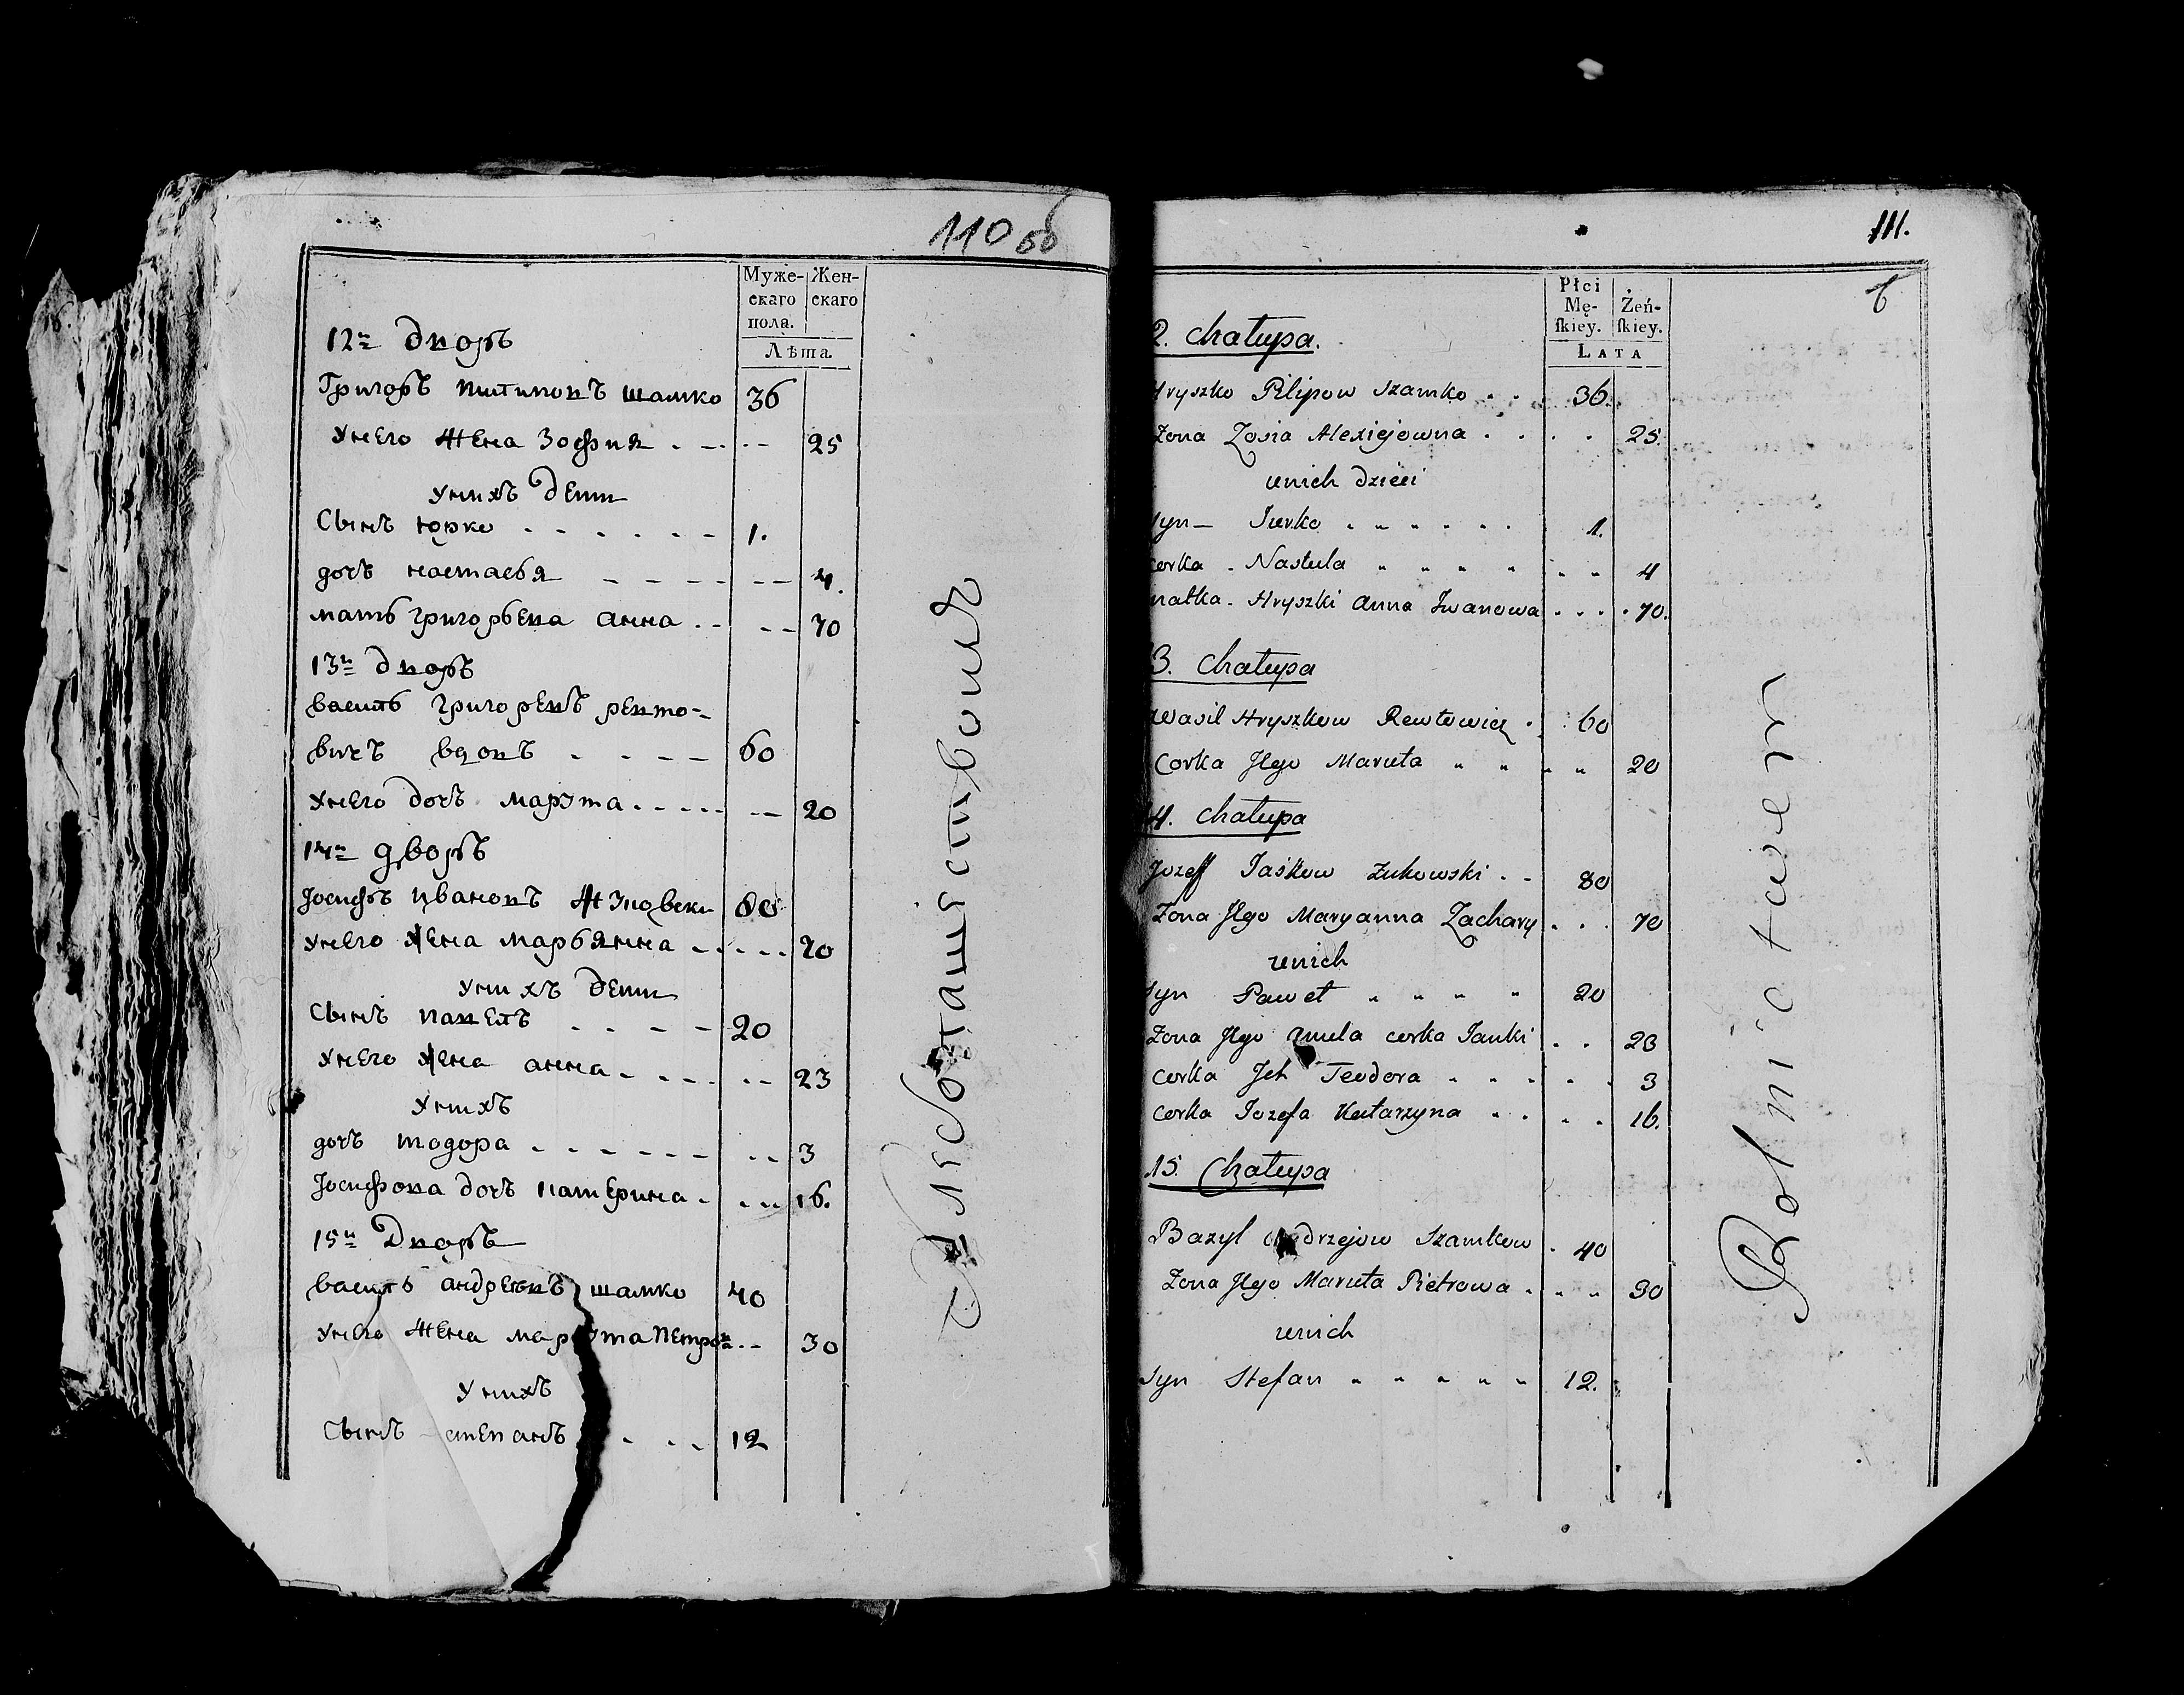 110 об
Муже-
скаго
пола.
Жен-
скаго
Лѣта
12й дворъ
Григоръ пилиповъ шамко 36
унего жена Зофия . -- -- 25
унихъ дети
Сынъ юрко - - - - - - 1.
дочъ настасья - - - - -- 4.
мать григорьева анна . . -- 70
13й дворъ
василь григоревъ ревто=
вичъ вдовъ - - - - 60
унего дочъ марута . . . . . -- 20
14й дворъ
Іосифъ ивановъ жуковски 80
унего жена марьянна . . . . . 70
унихъ дети
Сынъ павелъ - - - - 20
унего жена анна - - - - -- 23
унихъ
дочъ тодора - - - - - - -- 3
Іосифова дочъ катерина . . . . 16.
15й дворъ
василь андреевъ шамко 40
унего жена марута петрова -- 30
унихъ
Сынъ степанъ - - - 12
Хлебопашествомъ
111.
Płci
Mę-
skiey.
Żeń-
skiey.
LATA
2. Chałupa.
Hryszko Pilipow Szamko . . 36.
Zona Zosia Alexiejowna . . . . 25.
unich dzieci
Syn — Jurko . . . . . . 1.
corka - Nastula " " " " " " 4
matka - Hryszki Anna Iwanowa . . . . 70.
3. Chałupa
Wasil Hryszkow Rewtowicz . . 60
Corka Jego Maruta " " " " 20
4. Chałupa
Jozeff Jaśkow Żukowski . - 80
Zona Jego Maryanna Zachary . . . 70
unich
Syn Paweł " " " " 20
Zona Jego Anula corka Janki . . 23
corka Ich Teodora " " " " " 3
corka Jozefa Katarzyna . . . . 16.
15. Chałupa
Bazyl Andrzejow Szamkow . 40
Zona Jego Maruta Pietrowa . . . 30
unich
Syn Stefan " " " " " 12.
Rolnictwem